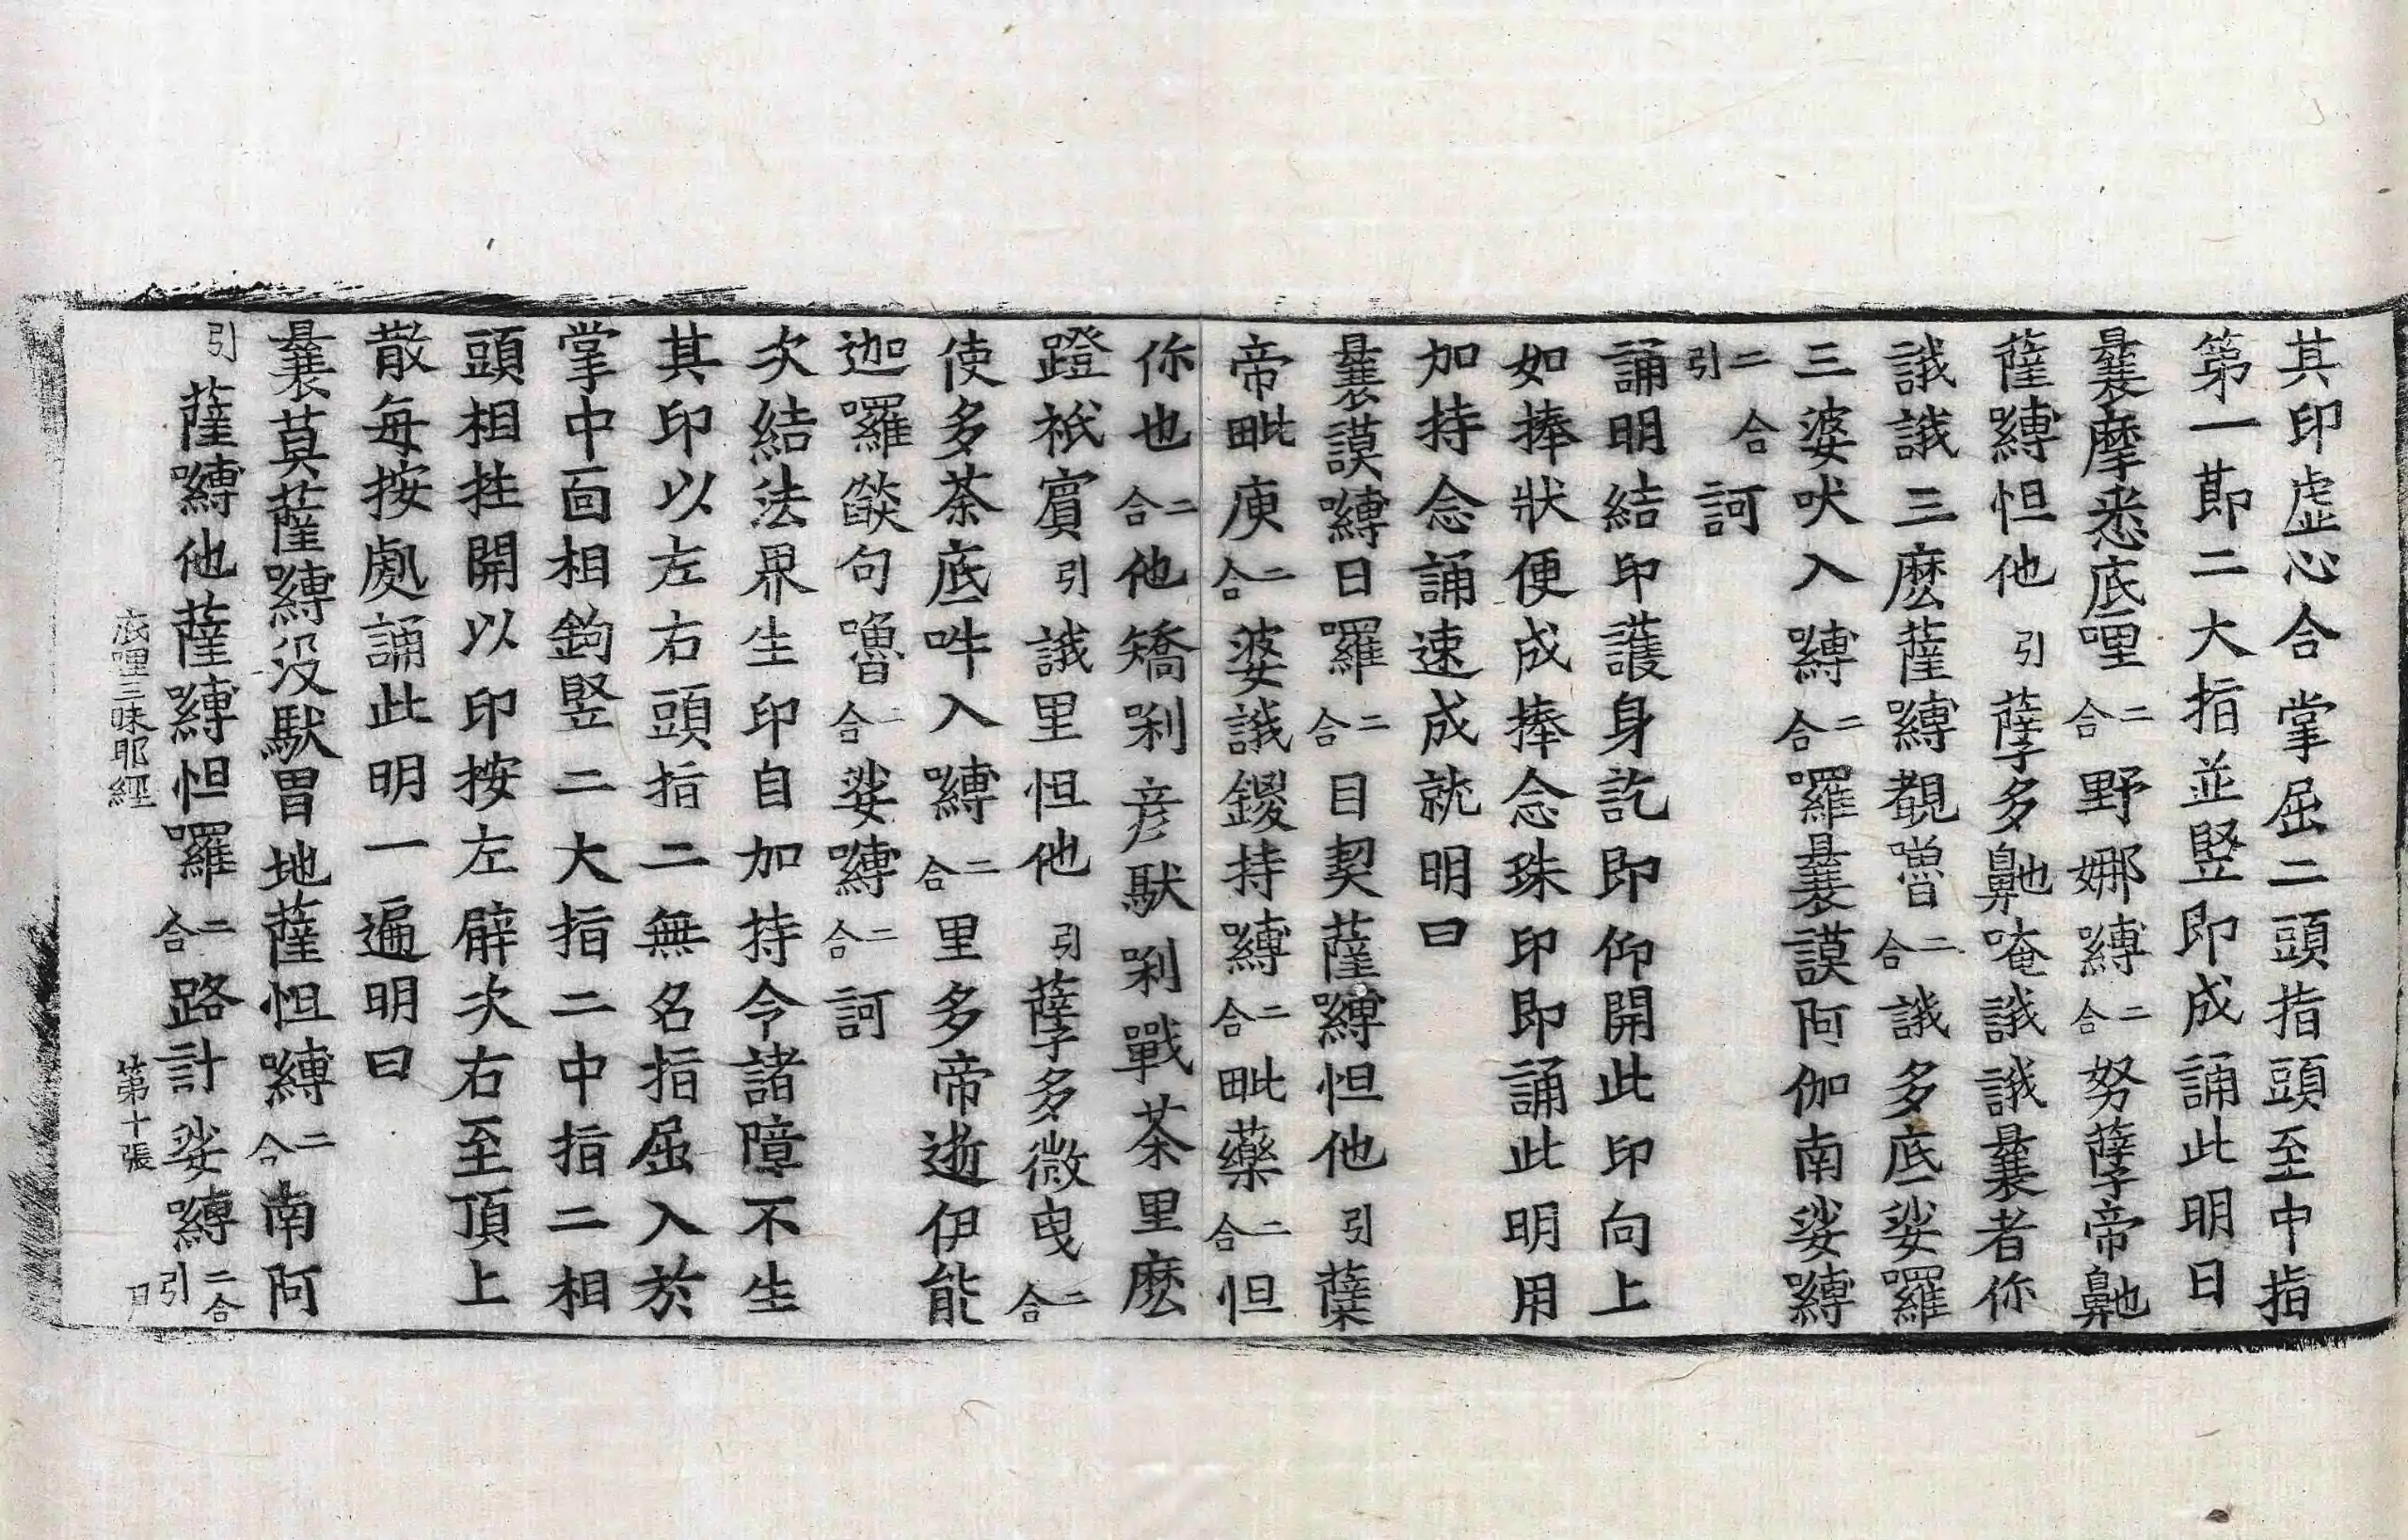 其印虛心合掌屈二頭指頭至中指
第一節二大指並竪即成誦此明曰
曩摩悉底哩二合野娜嚩二合努孽帝鼻也
薩嚩怛他引孽多鼻也唵誐誐曩者你
誐誐三麽薩嚩覩嚕二合誐多底娑囉
三婆吠入嚩二合囉曩謨阿伽南娑嚩
二合引訶
誦明結印護身訖即仰開此印向上
如捧狀便成捧念珠印即誦此明用
加持念誦速成就明曰
曩謨嚩日囉二合目契薩嚩怛他引蘖
帝毗庾二合婆誐鑁持嚩二合毗藥二合怛
你也二合他矯剁彦馱剁戰荼里麽
蹬祇賔引誐里怛他引孽多微曳二合
使多荼底吽入嚩二合里多帝逝伊能
迦囉燄句嚕二合娑嚩二合訶
次結法界生印自加持令諸障不生
其印以左右頭指二無名指屈入於
掌中面相鉤竪二大指二中指二相
頭相拄開以印按左臂次右至頂上
散每按處誦此明一遍明曰
曩莫薩嚩没馱冒地薩怛嚩二合南阿
引薩嚩他薩嚩怛囉二合路計娑嚩二合引
底哩三昧耶經 第十張